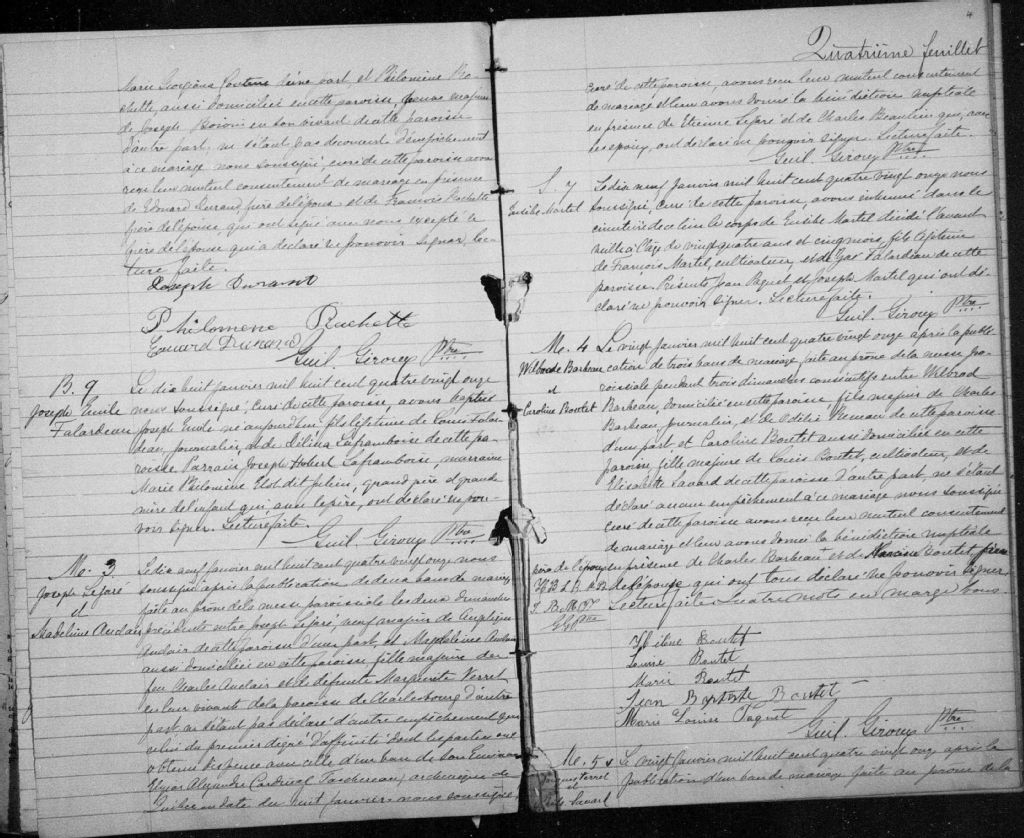 Marie Georgiana d'une part, et Philomène Ro-
chette, aussi domiciliée en cette paroisse, majeure
de Joseph Boivin en son vivant de cette paroisse
d'autre part, ne s'étant pas découvert d'empêchement
à ce mariage nous soussigné, curé de cette paroisse avons
reçu leur mutuel consentement de mariage en présence
de Edouard Durand frère de l'époux et de François Rochette
frère de l'épouse qui ont signé avec nous excepté le
frère de l'épouse qui a déclaré ne pouvoir signer. Lec-
ture faite.
Joseph Durand
Philomene Rochette
Edouard Durand
Guil. Giroux Ptre
B. 9
Joseph Emile
Falardeau
Le dix huit janvier mil huit cent quatre vingt onze
nous soussigné, curé de cette paroisse, avons baptisé
Joseph Emile né aujourd'hui fils légitime de Louis Falar-
deau, journalier, et de Délina Laframboise de cette pa-
roisse Parrain Joseph Hobert Laframboise, marraine
Marie Philomène Elot dit Julein, grand père et grande
mère de l'enfant qui, avec le père, ont déclaré ne pou-
voir signer. Lecture faite.
Guil. Giroux Ptre
M. 3
Joseph Légaré
et
Madeleine Auclair
Le dix neuf janvier mil huit cent quatre vingt onze nous
soussigné après la publication de deux bans de mariage
faite au prône de la messe paroissiale les deux dimanches
précédents entre Joseph Légaré, veuf majeur de Angélique
Auclair de cette paroisse d'une part, et Magdeleine Auclair
aussi domiciliée en cette paroisse fille majeure de
feu Charles Auclair et de défunte Marguerite Verret
en leur vivant de la paroisse de Charlesbourg d'autre
part ne s'étant pas déclaré d'autre empêchement que
celui du premier degré d'affinité dont les parties ont
obtenu dispense avec celle d'un ban de Son Eminence
Elzéar Alexandre Cardinal Taschereau, archevêque de
Québec en date du huit janvier. nous soussigné
4
Quatrième feuillet
curé de cette paroisse, avons reçu leur mutuel consentement
de mariage et leur avons donné la bénédiction nuptiale
en présence de Etienne Légaré et de Charles Beaulieu qui, avec
les époux, ont déclaré ne pouvoir signer. Lecture faite.
Guil. Giroux Ptre
S. 7
Eusèbe Martel
Le dix neuf janvier mil huit cent quatre vingt onze nous
soussigné, curé de cette paroisse, avons inhumé dans le
cimetière de ce lieu le corps de Eusèbe Martel décédé l'avant
veille à l'âge de vingt quatre ans et cinq mois, fils légitime
de François Martel, cultivateur, et de Falardeau de cette
paroisse. Présents Jean Paquet et Joseph Martel qui ont dé-
claré ne pouvoir signer. Lecture faite.
Guil. Giroux Ptre
M. 4
Wilbrode Barbeau
et
Caroline Boutet
Le vingt janvier mil huit cent quatre vingt onze après la publi-
cation de trois bans de mariage, faite au prône de la messe pa-
roissiale pendant trois dimanches consécutifs entre Wilbrod
Barbeau, domicilié en cette paroisse fils majeur de Charles
Barbeau, journalier, et de Odélie Renaud de cette paroisse
d'une part et Caroline Boutet aussi domiciliée en cette
paroisse, fille majeure de Louis Boutet, cultivateur, et de
Elisabeth Savard de cette paroisse d'autre part, ne s'étant
déclaré aucun empêchement à ce mariage nous soussigné
curé de cette paroisse avons reçu leur mutuel consentement
de mariage et leur avons donné la bénédiction nuptiale
père de l'époux en présence de Charles Barbeau et de Boutet frère
de l'épouse qui ont tous déclaré ne pouvoir signer
Lecture faite Quatre mots en marge bons
G.G Ptre
Hélène Boutet
Louise Boutet
Marie Boutet
Jean Baptiste Boutet
Marie Louise Paquet
Guil. Giroux Ptre
M. 5
Verret
et
Savard
Le vingt janvier mil huit cent quatre vingt onze après la
publication d'un ban de mariage faite au prône de la